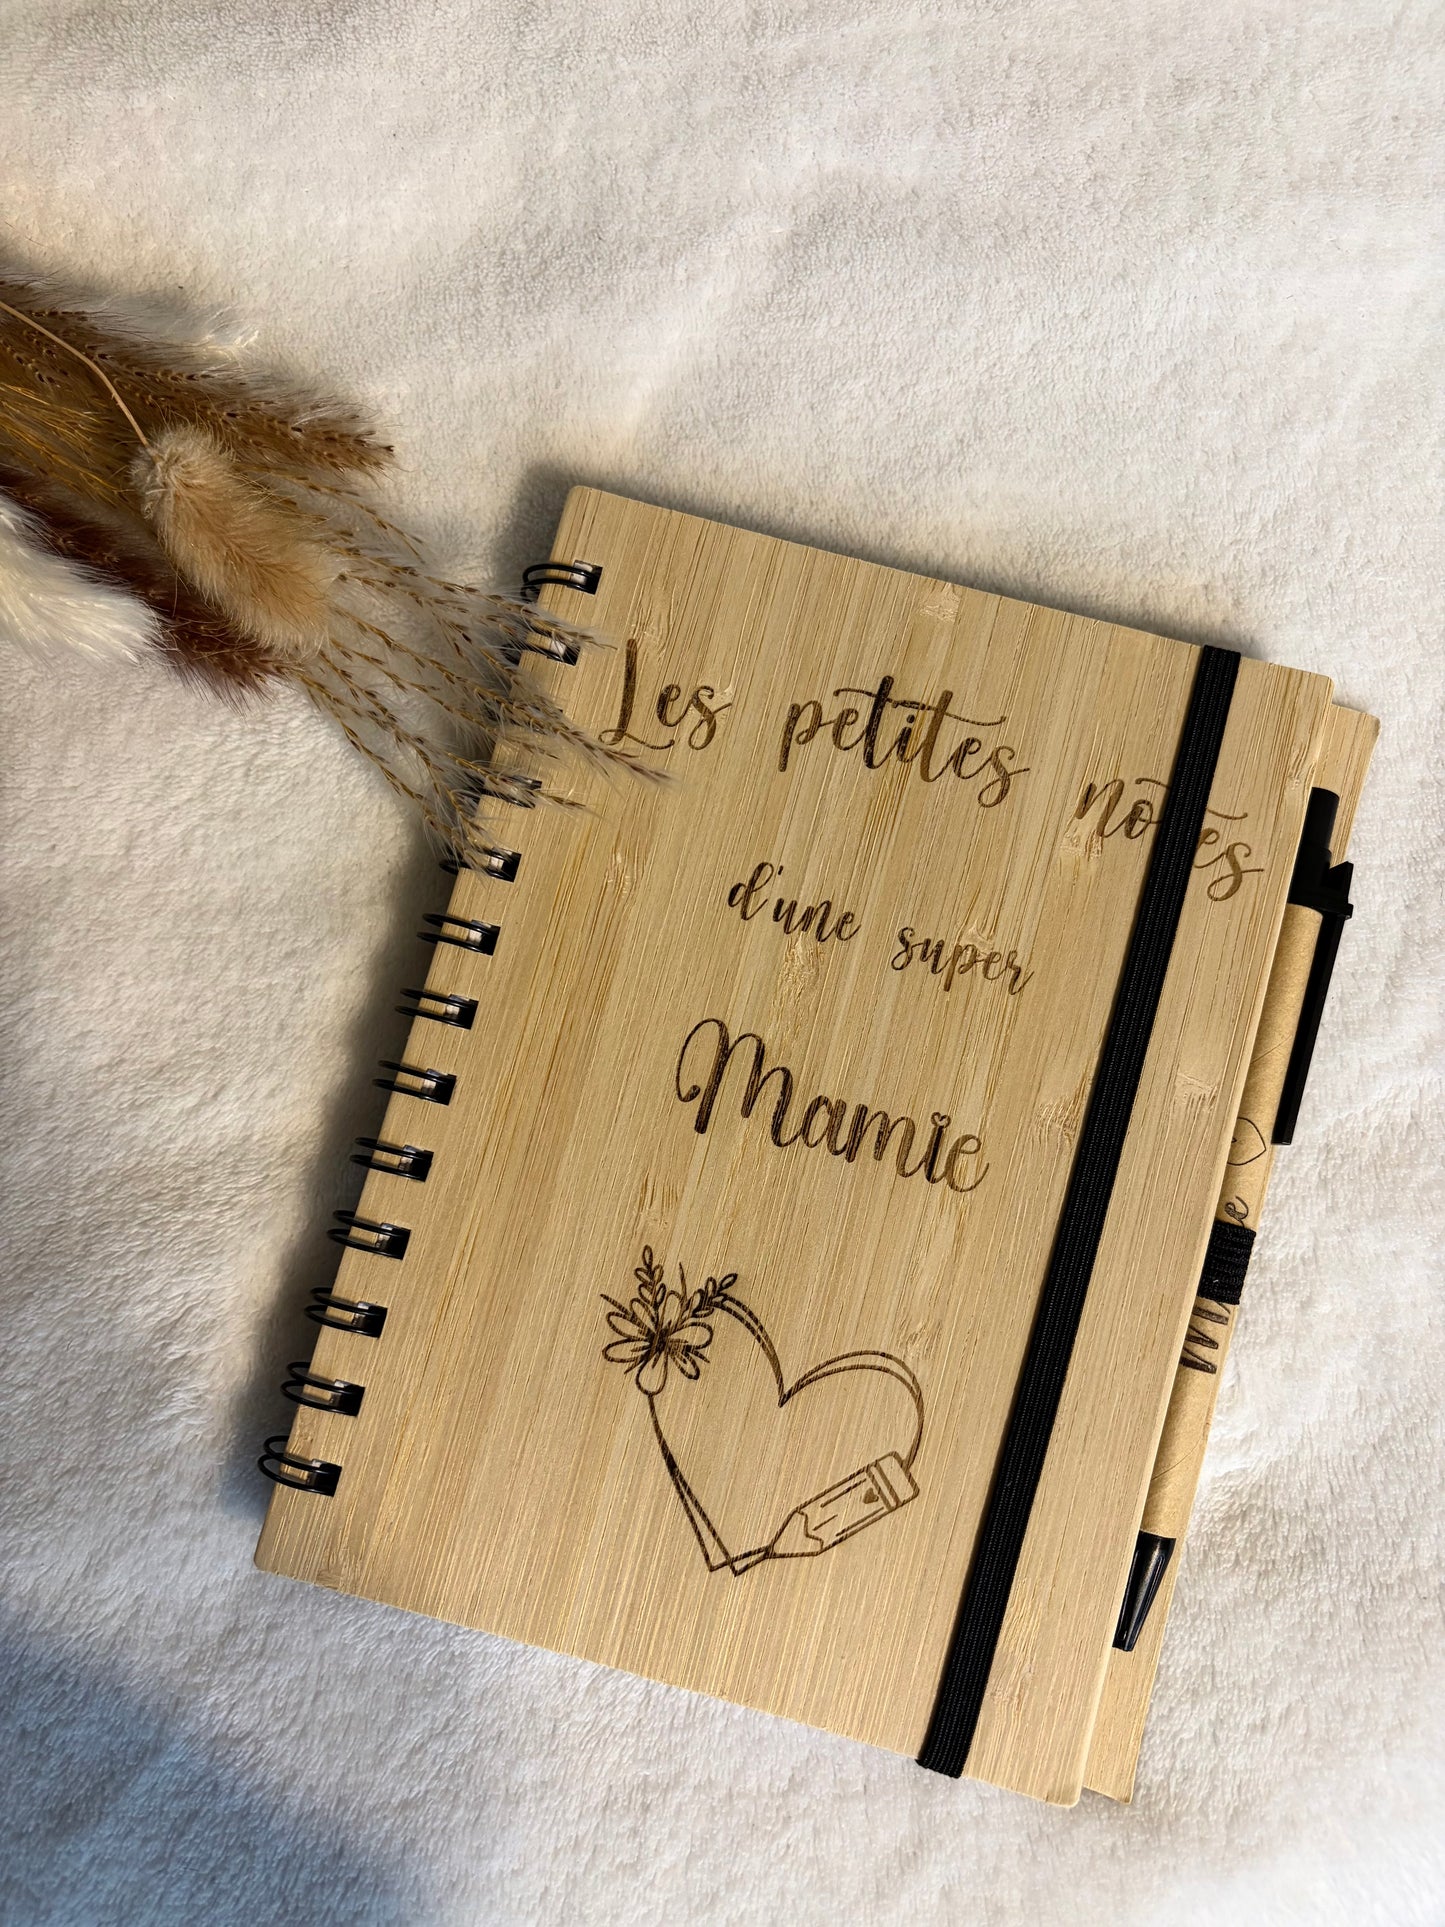 Les petites notes
d'une super
Mamie